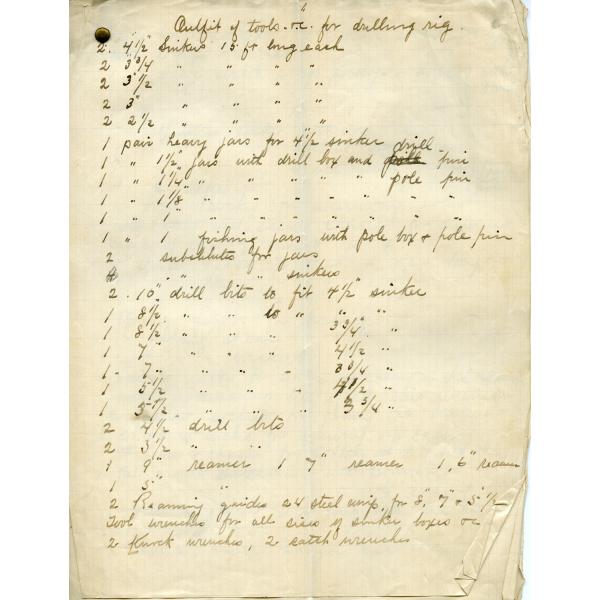 Outfit of tools &c. for drilling rig.
2. 4 1/2" Sinkers 15 ft long each
2 3 3/4" " " " "
2 3 1/2" " " " "
2 3" " " " "
2 2 1/2 " " " "
1 pair heavy jars for 4 1/2 sinker drill
1 " 1 1/2" jars with drill box and pin
1 " 1 1/4" " " " " " pole pin
1 " 1 1/8 " " " " " " "
1 " 1" " " " " " " "
1 " 1 fishing jars with pole box & pole pin
2 substitutes for jars
4 " " sinkers
2. 10" drill bits to fit 4 1/2" sinker
1 8 1/2 " " to " " "
1 8 1/2 " " " 3 3/4" "
1 7" " " " 4 1/2 "
1 - 7" " " " 3 3/4 "
1 5 1/2 " " " 4 1/2 "
1 5 1/2 " " " 3 3/4 "
2 4 1/2 drill bits
2 3 1/2 " "
1 9" reamer 1 7" reamer 1, 6" reamer
1 5" "
2 Reaming guides 24 steel for 8", 7" & 5 1/2
Tool wrenches for all sizes of sinker boxes &c
2 Knock wrenches, 2 catch wrenches